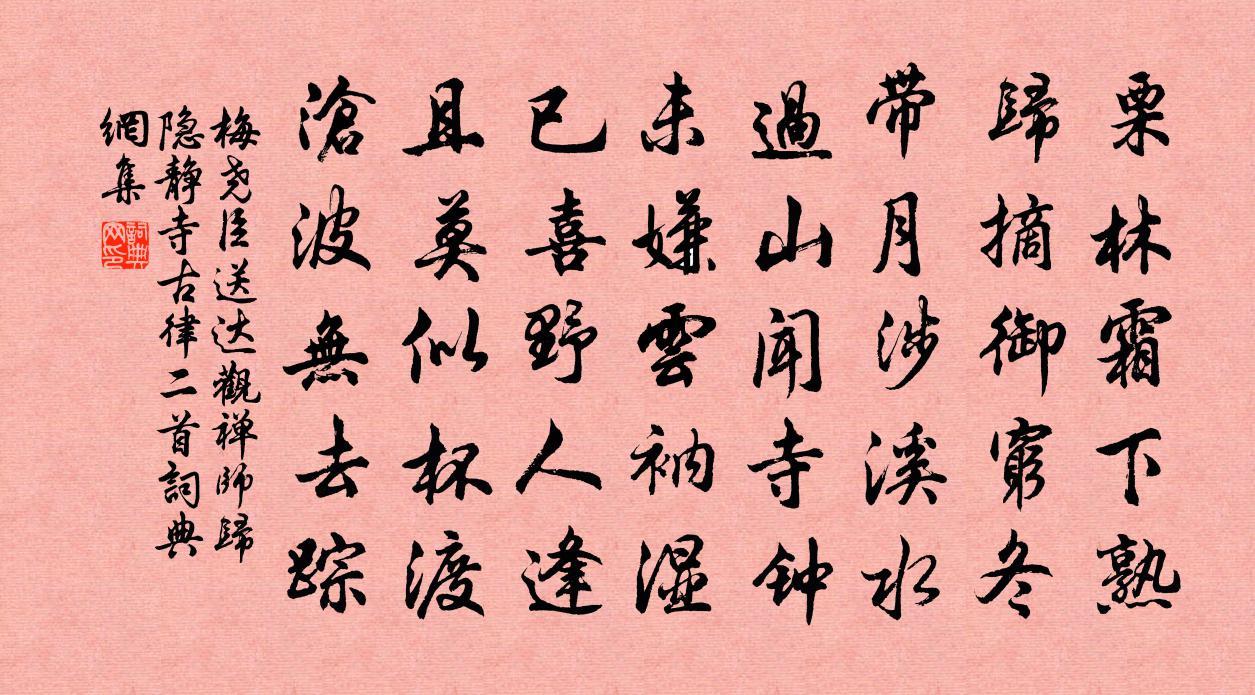 栗林霜下熟
歸摘御窮冬
带月涉溪水
過山聞寺钟
未嫌雲衲湿
已喜野人逢
且莫似杯渡
滄波無去踪
梅尧臣送达觀禅师歸
隐静寺古律二首詞典
網集
詞典网印